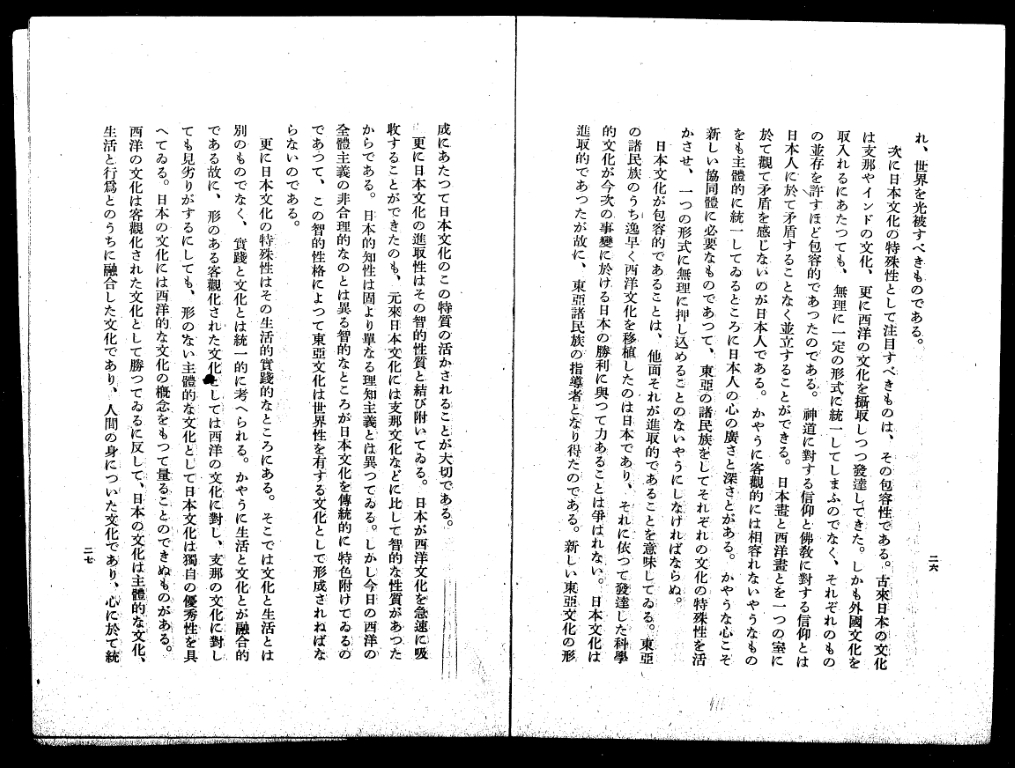 二六
れ、世界を光被すべきものである。
次に日本文化の特殊性として注目すべきものは、その包容性である。古來日本の文化
は支那やインドの文化、更に西洋の文化を攝取しつつ發達してきた。しかも外國文化を
取入れるにあたつても、無理に一定の形式に統一してしまふのでなく、それぞれのもの
の並存を許すほど包容的であつたのである。神道に對する信仰と佛敎に對する信仰とは
日本人に於て矛盾することなく並立することができる。日本畫と西洋畫とを一つの室に
於て觀て矛盾を感じないのが日本人である。かやうに客觀的には相容れないやうなもの
をも主體的に統一してゐるところに日本人の心の廣さと深さとがある。かやうな心こそ
新しい協同體に必要なものであつて、東亞の諸民族をしてそれぞれの文化の特殊性を活
かさせ、一つの形式に無理に押し込めることのないやうにしなければならぬ。
日本文化が包容的であることは、他面それが進取的であることを意味してゐる。東亞
の諸民族のうち逸早く西洋文化を移植したのは日本であり、それに依つて發達した科學
的文化が今次の事變に於ける日本の勝利に與つて力あることは爭はれない。日本文化は
進取的であつたが故に、東亞諸民族の指導者となり得たのである。新しい東亞文化の形
成にあたつて日本文化のこの特質の活かされることが大切である。
更に日本文化の進取性はその智的性質と結び附いてゐる。日本が西洋文化を急速に吸
收することができたのも、元來日本文化には支那文化などに比して智的な性質があつた
からである。日本的知性は固より單なる理知主義とは異つてゐる。しかし今日の西洋の
全體主義の非合理的なのとは異る智的なところが日本文化を傳統的に特色附けてゐるの
であつて、この智的性格によつて東亞文化は世界性を有する文化として形成されねばな
らないのである。
更に日本文化の特殊性はその生活的實踐的なところにある。そこでは文化と生活とは
別のものでなく、實踐と文化とは統一的に考へられる。かやうに生活と文化とが融合的
である故に、形のある客觀化された文化としては西洋の文化に對し、支那の文化に對し
ても見劣りがするにしても、形のない主體的な文化として日本文化は獨自の優秀性を具
へてゐる。日本の文化には西洋的な文化の概念をもつて量ることのできぬものがある。
西洋の文化は客觀化された文化として勝つてゐるに反して、日本の文化は主體的な文化、
生活と行爲とのうちに融合した文化であり、人間の身についた文化であり、心に於て統
二七